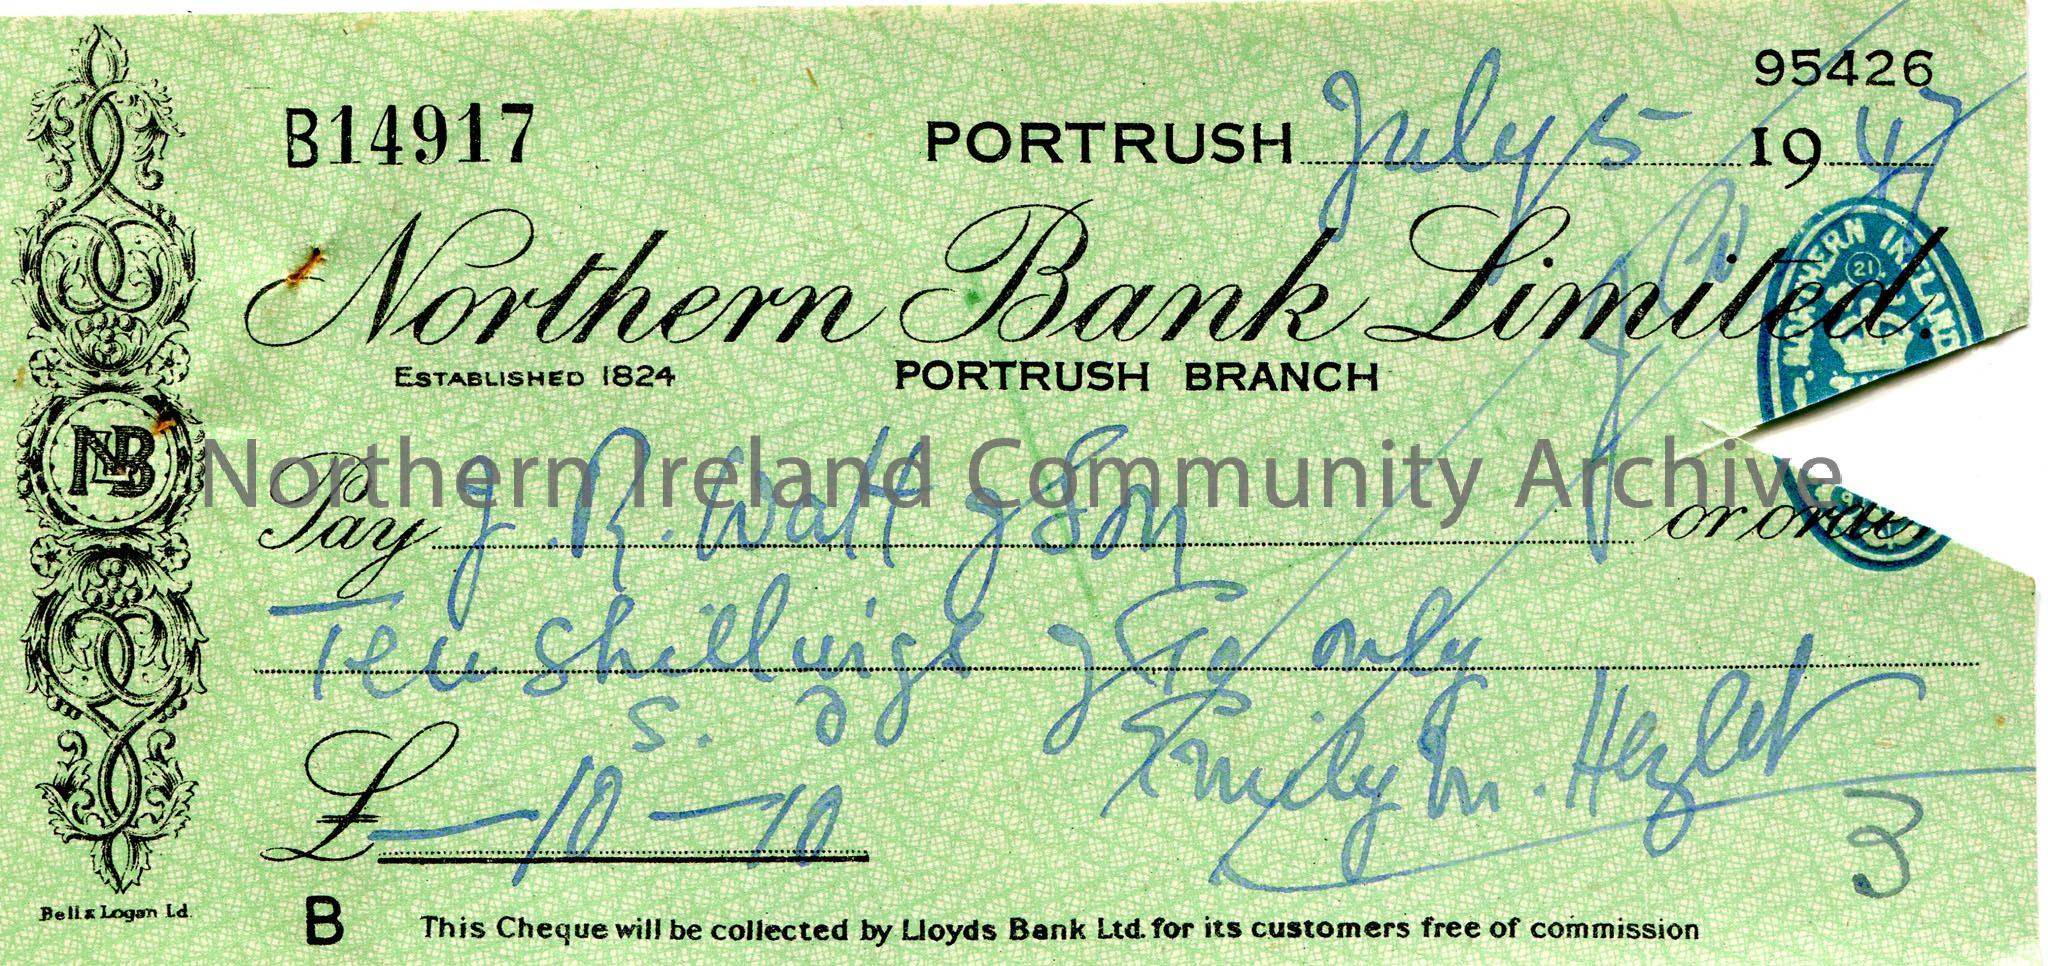 95426
B14917 PORTRUSH July 5 1947
Northern Bank Limited.
ESTABLISHED 1824 PORTRUSH BRANCH
NORTHERN IRELAND
21
NBL
Northern Ireland Community Archive
Pay J. R. Watt & Son or order
Ten shillings & 10 only
s. d
£ — 10 — 10
Emily M. Hezlet
3
Bell & Logan Ld.
B This Cheque will be collected by Lloyds Bank Ltd. for its customers free of commission